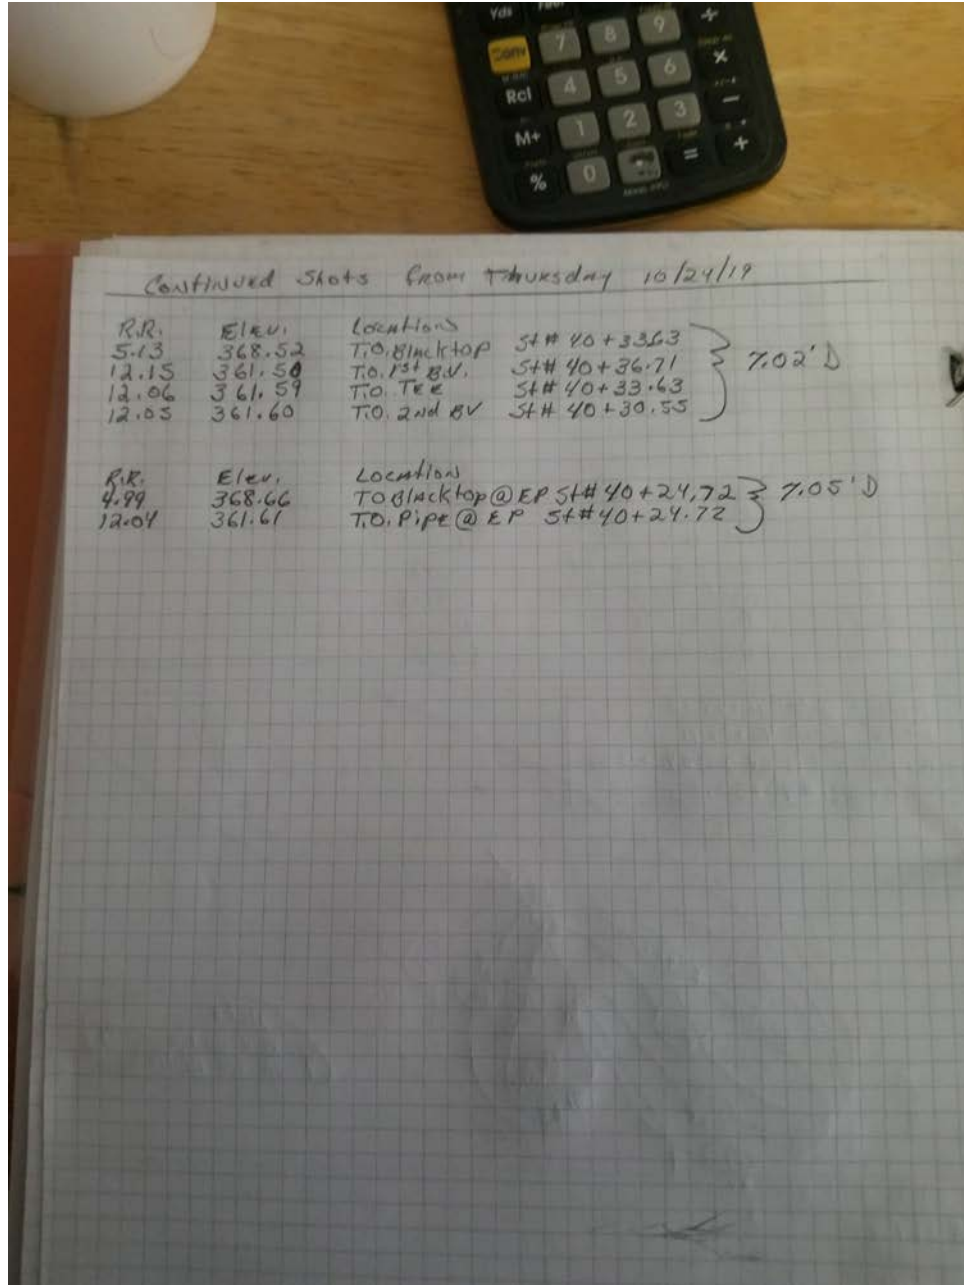 Yds
7 8 9 ÷
Conv
4 5 6 ×
Rcl
1 2 3 −
M+
% 0 . = +
Continued Shots from Thursday 10/24/19
R.R. Elev. Locations
5.13 368.52 T.O. Blacktop St# 40+33.63
12.15 361.50 T.O. 1st B.V. St# 40+36.71 } 7.02' D
12.06 361.59 T.O. TEE St# 40+33.63
12.05 361.60 T.O. 2nd BV St# 40+30.55
R.R. Elev. Location
4.99 368.66 TO Blacktop @ EP St# 40+24.72 } 7.05' D
12.04 361.61 T.O. Pipe @ EP St# 40+24.72